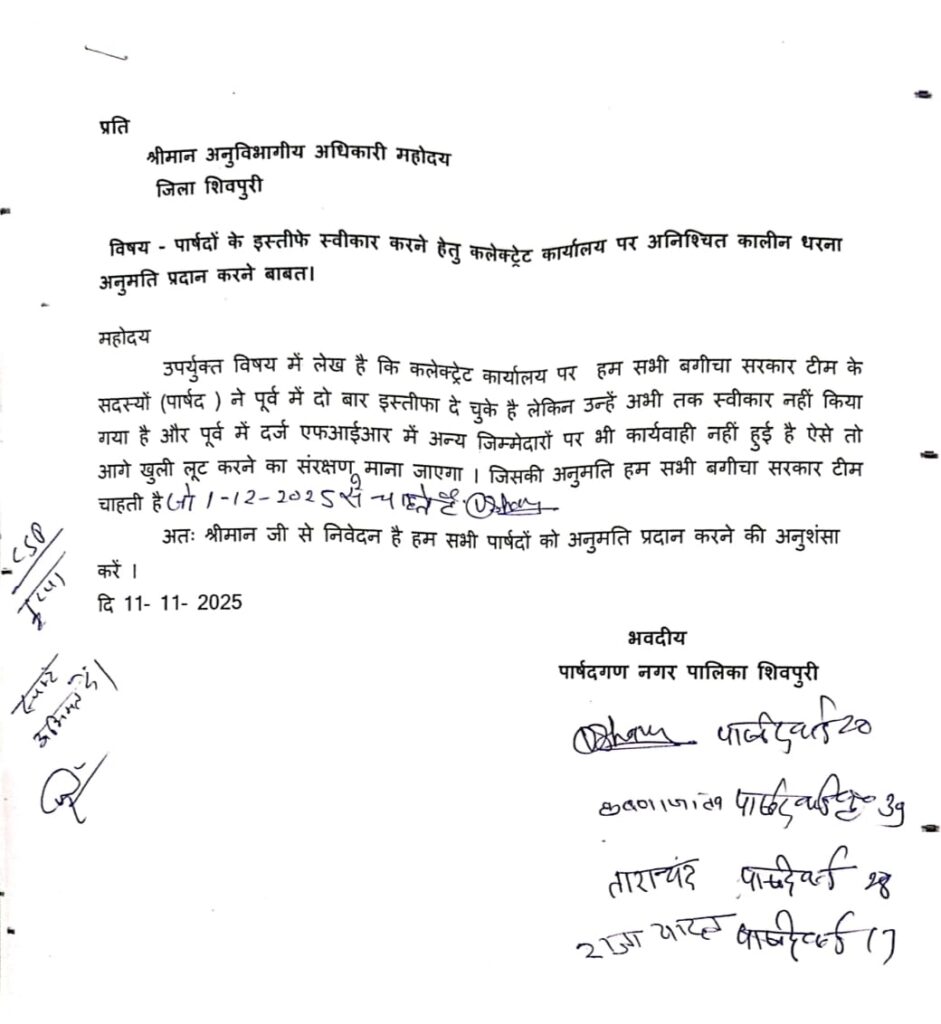 प्रति
श्रीमान अनुविभागीय अधिकारी महोदय
जिला शिवपुरी
विषय - पार्षदों के इस्तीफे स्वीकार करने हेतु कलेक्ट्रेट कार्यालय पर अनिश्चित कालीन धरना
अनुमति प्रदान करने बाबत।
महोदय
उपर्युक्त विषय में लेख है कि कलेक्ट्रेट कार्यालय पर हम सभी बगीचा सरकार टीम के
सदस्यों (पार्षद ) ने पूर्व में दो बार इस्तीफा दे चुके है लेकिन उन्हें अभी तक स्वीकार नहीं किया
गया है और पूर्व में दर्ज एफआईआर में अन्य जिम्मेदारों पर भी कार्यवाही नहीं हुई है ऐसे तो
आगे खुली लूट करने का संरक्षण माना जाएगा । जिसकी अनुमति हम सभी बगीचा सरकार टीम
चाहती है (जो 1-12-2025 से चाहते हैं
अतः श्रीमान जी से निवेदन है हम सभी पार्षदों को अनुमति प्रदान करने की अनुशंसा
करें ।
दि 11- 11- 2025
CSP
भवदीय
पार्षदगण नगर पालिका शिवपुरी
पार्षद वार्ड 20
पार्षद वार्ड 39
ताराचंद पार्षद वार्ड
राजा यादव पार्षद वार्ड 17